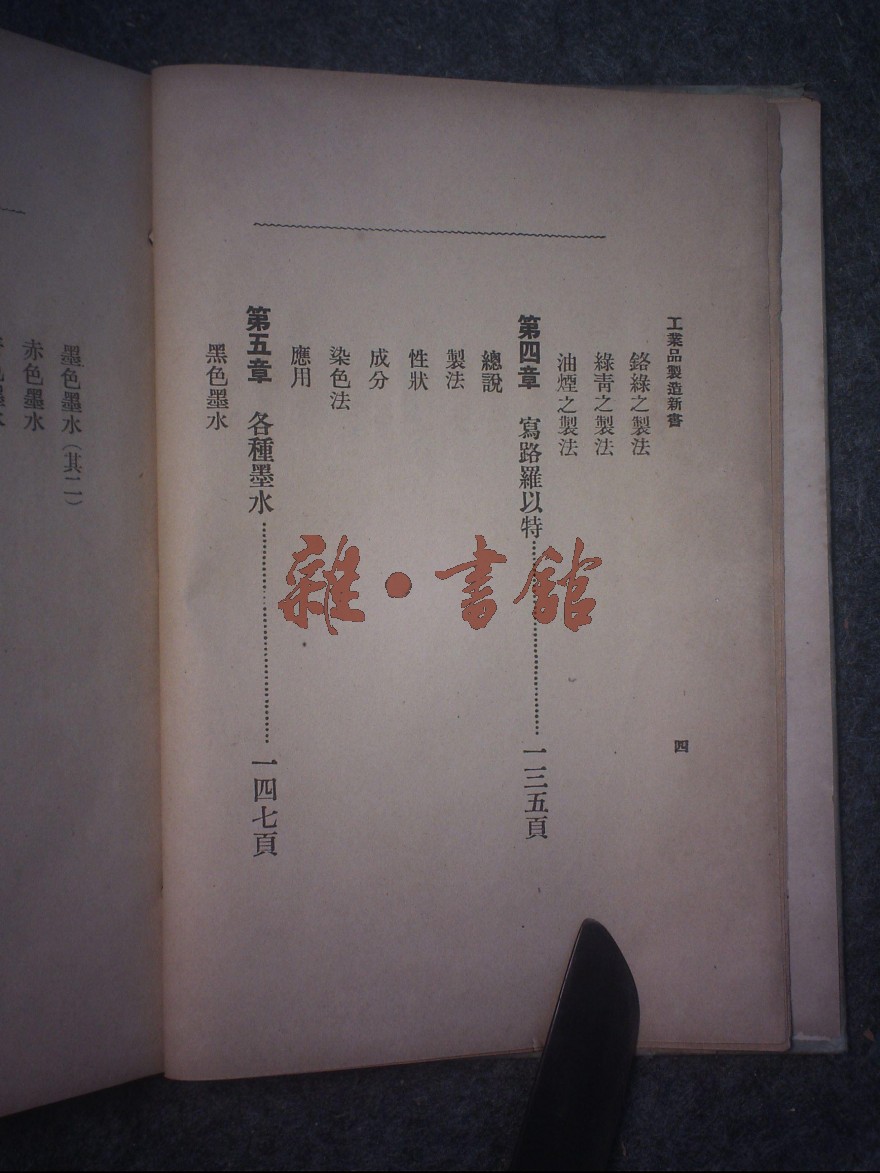 工業品製造新書
四
鉻綠之製法
綠青之製法
油煙之製法
第四章 寫路羅以特……一三五頁
總說
製法
性狀
成分
染色法
應用
第五章 各種墨水……一四七頁
黑色墨水
墨色墨水(其二)
赤色墨水
雜·書館